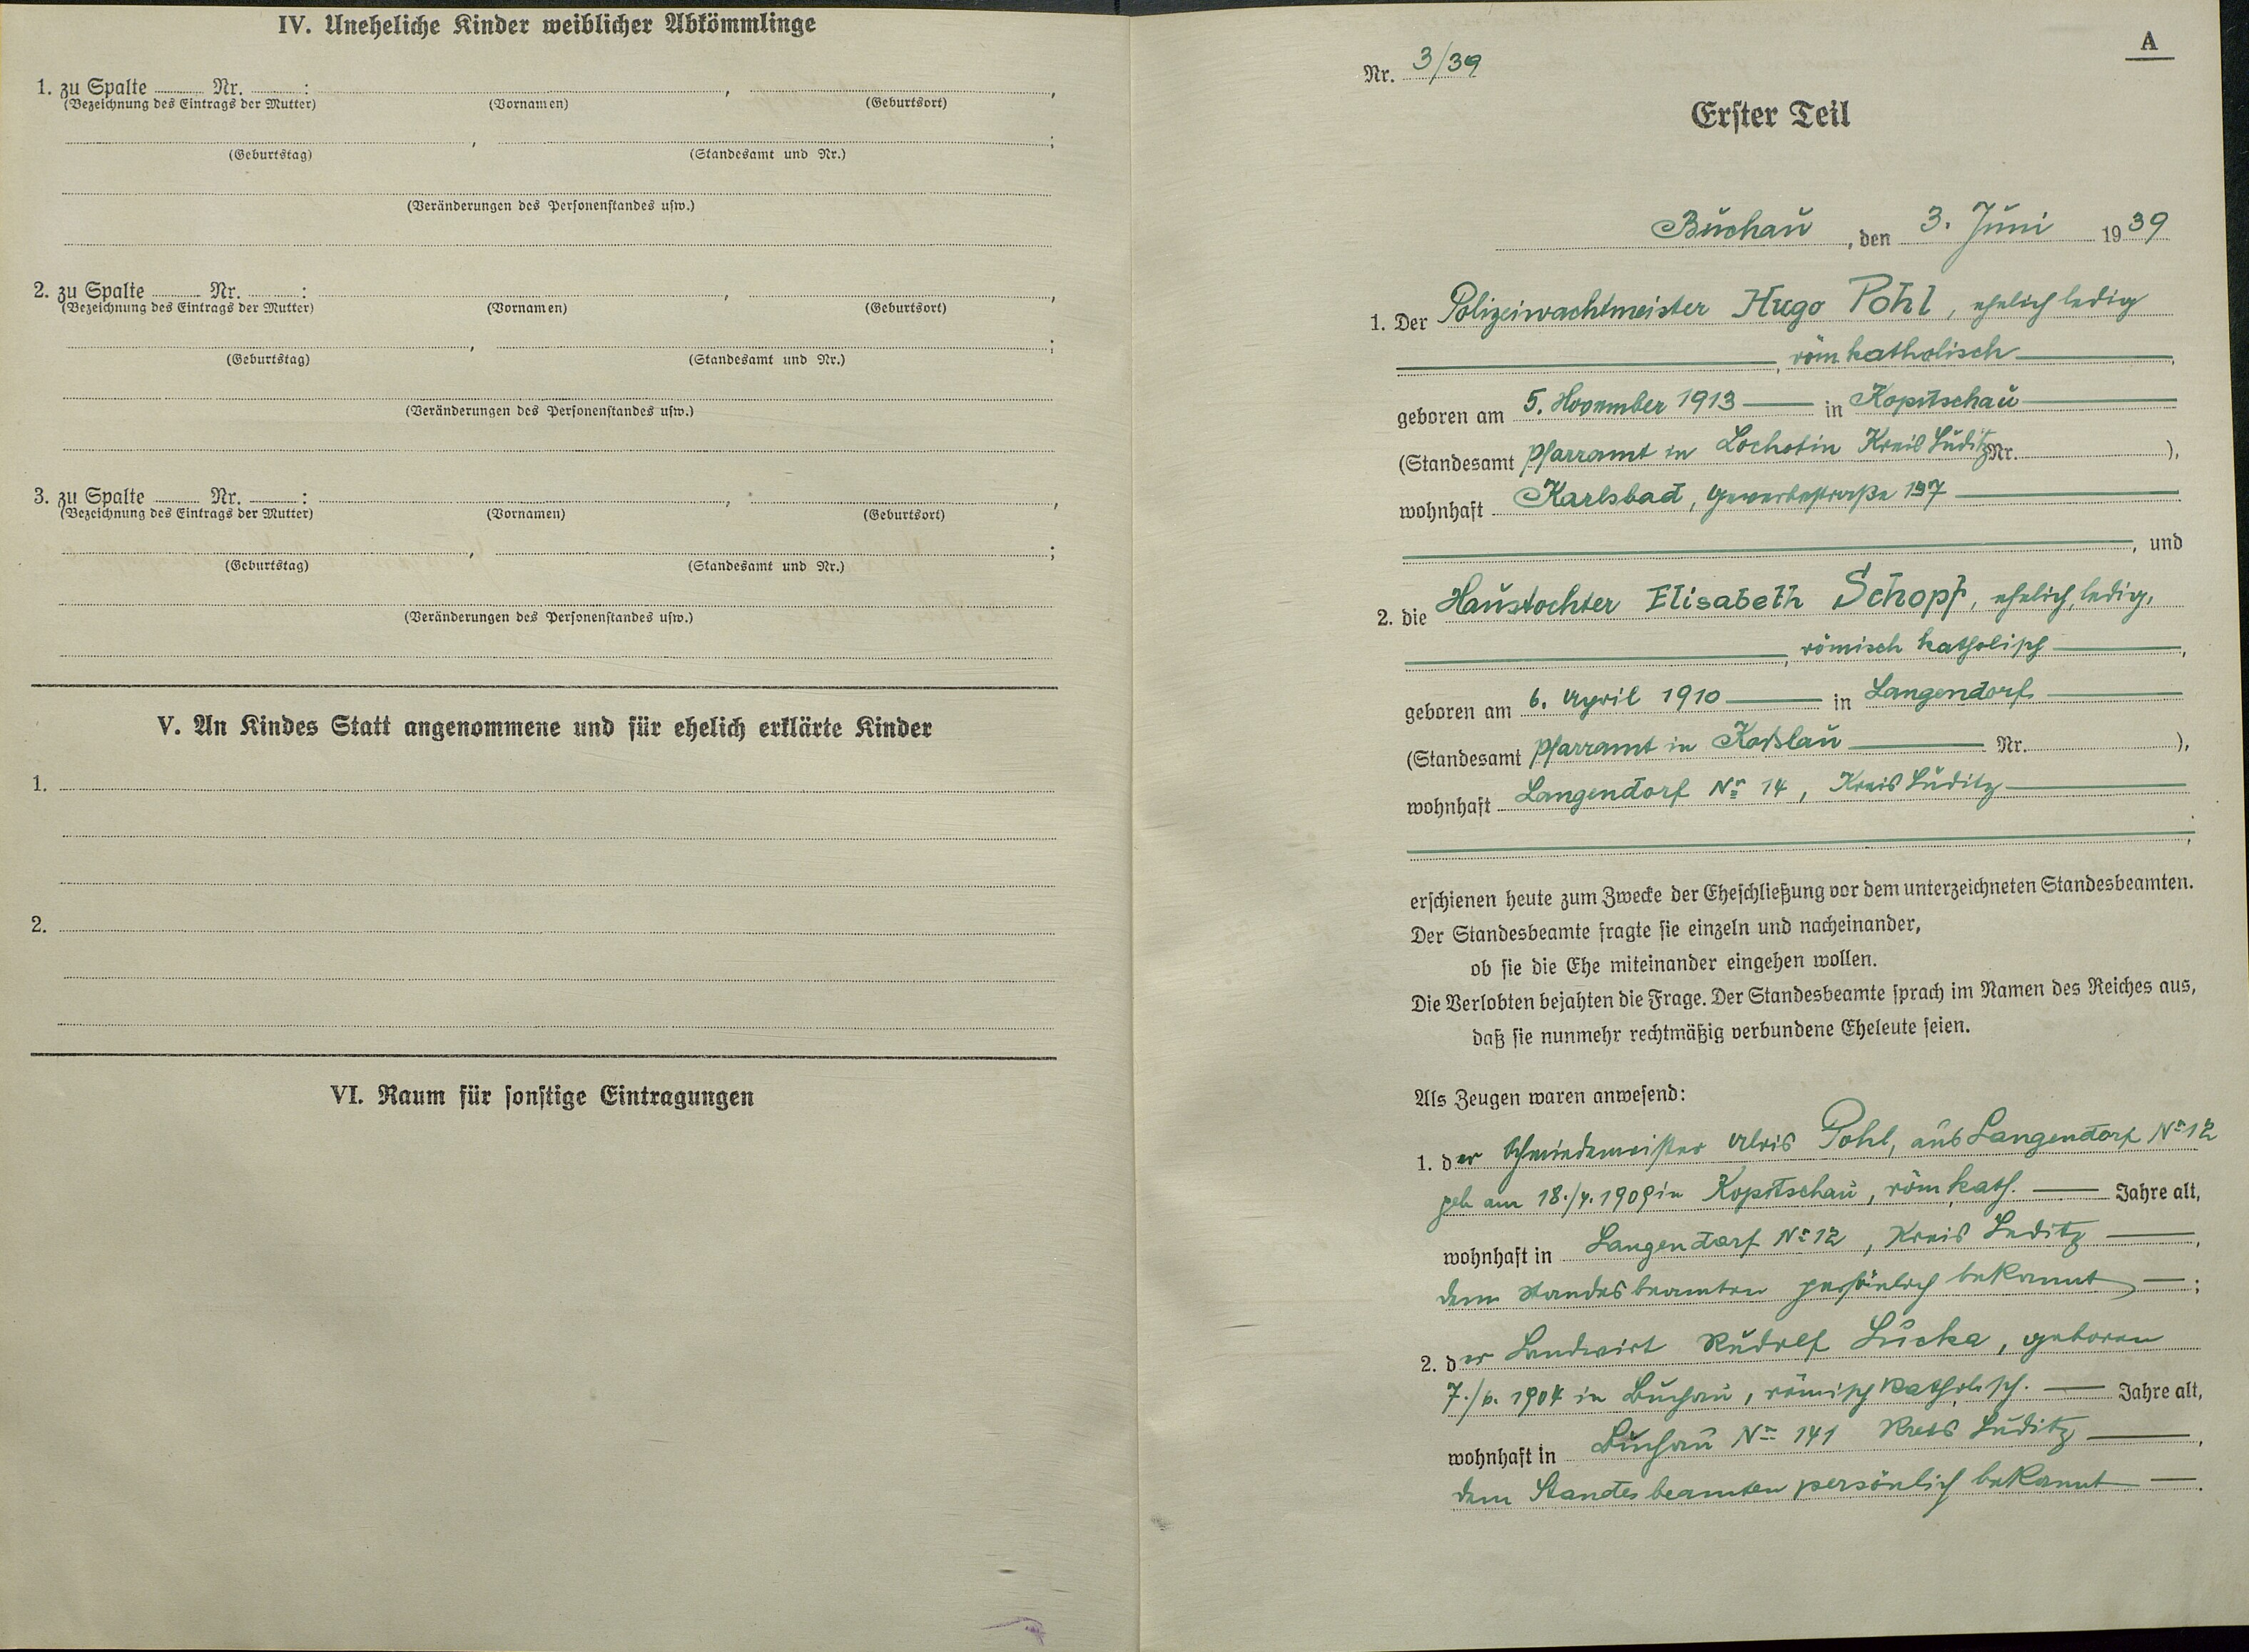 IV. Uneheliche Kinder weiblicher Abkömmlinge
1. zu Spalte ........ Nr. ........ : , ,
(Bezeichnung des Eintrags der Mutter) (Vornamen) (Geburtsort)
, ;
(Geburtstag) (Standesamt und Nr.)
(Veränderungen des Personenstandes usw.)
2. zu Spalte ........ Nr. ........ : , ,
(Bezeichnung des Eintrags der Mutter) (Vornamen) (Geburtsort)
, ;
(Geburtstag) (Standesamt und Nr.)
(Veränderungen des Personenstandes usw.)
3. zu Spalte ........ Nr. ........ : , ,
(Bezeichnung des Eintrags der Mutter) (Vornamen) (Geburtsort)
, ;
(Geburtstag) (Standesamt und Nr.)
(Veränderungen des Personenstandes usw.)
V. An Kindes Statt angenommene und für ehelich erklärte Kinder
1.
2.
VI. Raum für sonstige Eintragungen
A
Nr. 3/39
Erster Teil
Buchau, den 3. Juni 1939
1. Der Polizeiwachtmeister Hugo Pohl, ehelich ledig
, röm katholisch ,
geboren am 5. November 1913 — in Kopitschau
(Standesamt Pfarramt in Lochotin Kreis Luditz Nr. ),
wohnhaft Karlsbad, Gewerbestraße 197
, und
2. die Haustochter Elisabeth Schopf, ehelich, ledig,
, römisch katholisch ,
geboren am 6. April 1910 — in Langendorf
(Standesamt Pfarramt in Koslau — Nr. ),
wohnhaft Langendorf Nr 14, Kreis Luditz
erschienen heute zum Zwecke der Eheschließung vor dem unterzeichneten Standesbeamten.
Der Standesbeamte fragte sie einzeln und nacheinander,
ob sie die Ehe miteinander eingehen wollen.
Die Verlobten bejahten die Frage. Der Standesbeamte sprach im Namen des Reiches aus,
daß sie nunmehr rechtmäßig verbundene Eheleute seien.
Als Zeugen waren anwesend:
1. der Schmiedemeister Alois Pohl, aus Langendorf Nr 12
geb am 18./4. 1909 in Kopitschau, röm kath. — Jahre alt,
wohnhaft in Langendorf Nr 12, Kreis Luditz — ,
dem Standesbeamten persönlich bekannt — ;
2. der Landwirt Rudolf Lucka, geboren
7./6. 1904 in Buchau, römisch katholisch. — Jahre alt,
wohnhaft in Buchau Nr 141 Kreis Luditz — ,
dem Standesbeamten persönlich bekannt — .